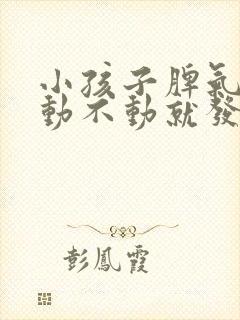 小孩子脾氣
動不動就發
彭鳳霞